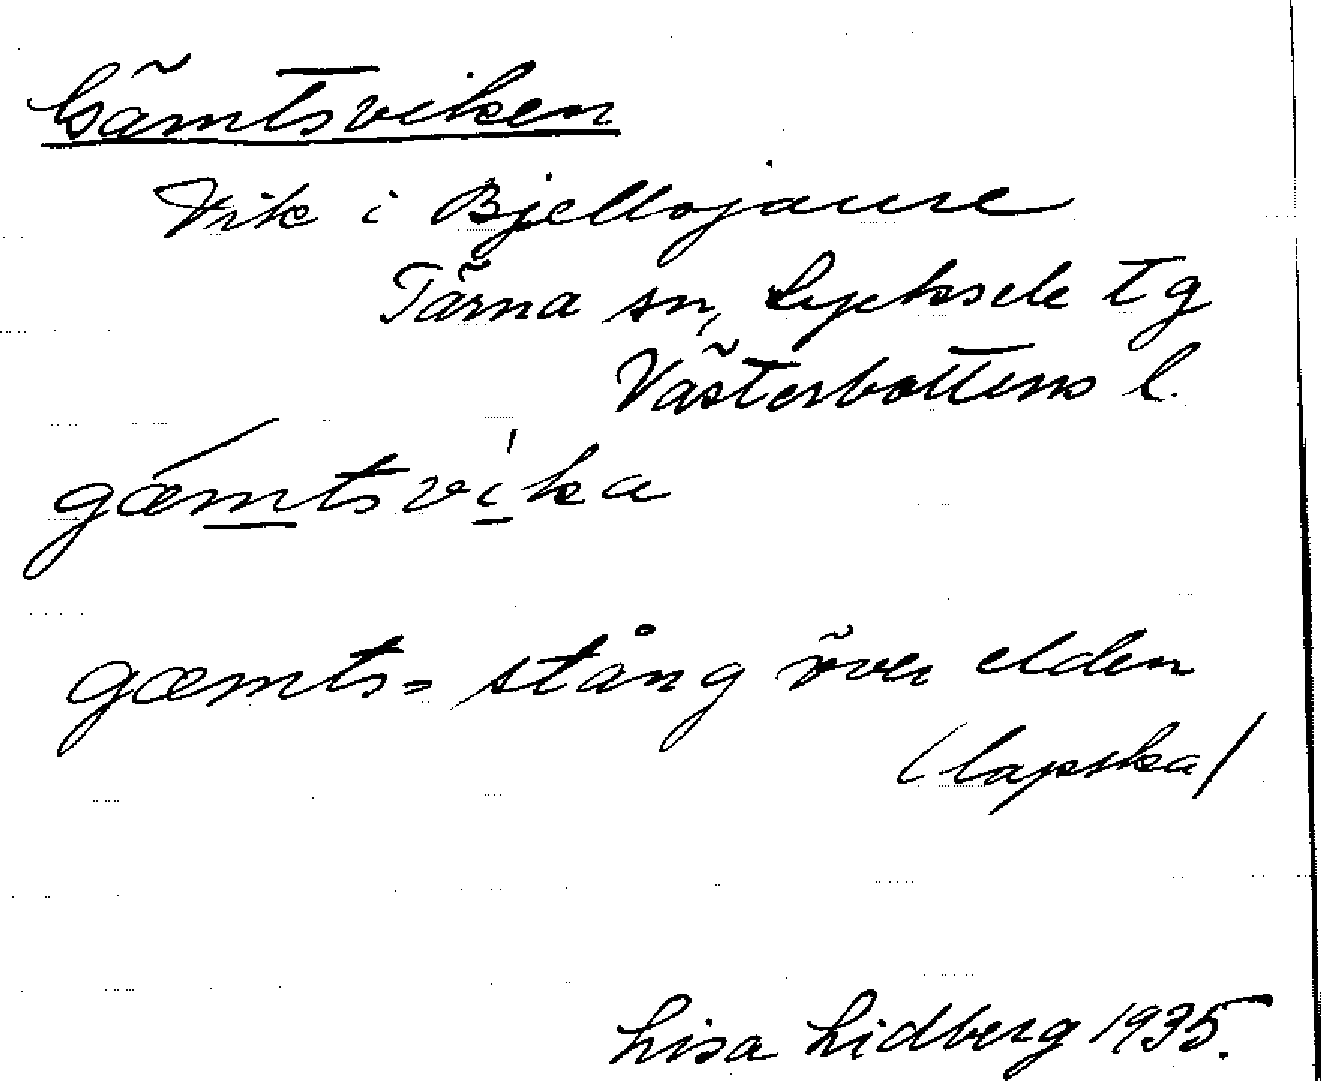 Gämtsviken
Vik i Bjellojaure
Tärna sn, Lycksele tg
Västerbottens l.
gæmtsvika
gæmts = stång över elden
(lapska)
Lisa Lidberg 1935.